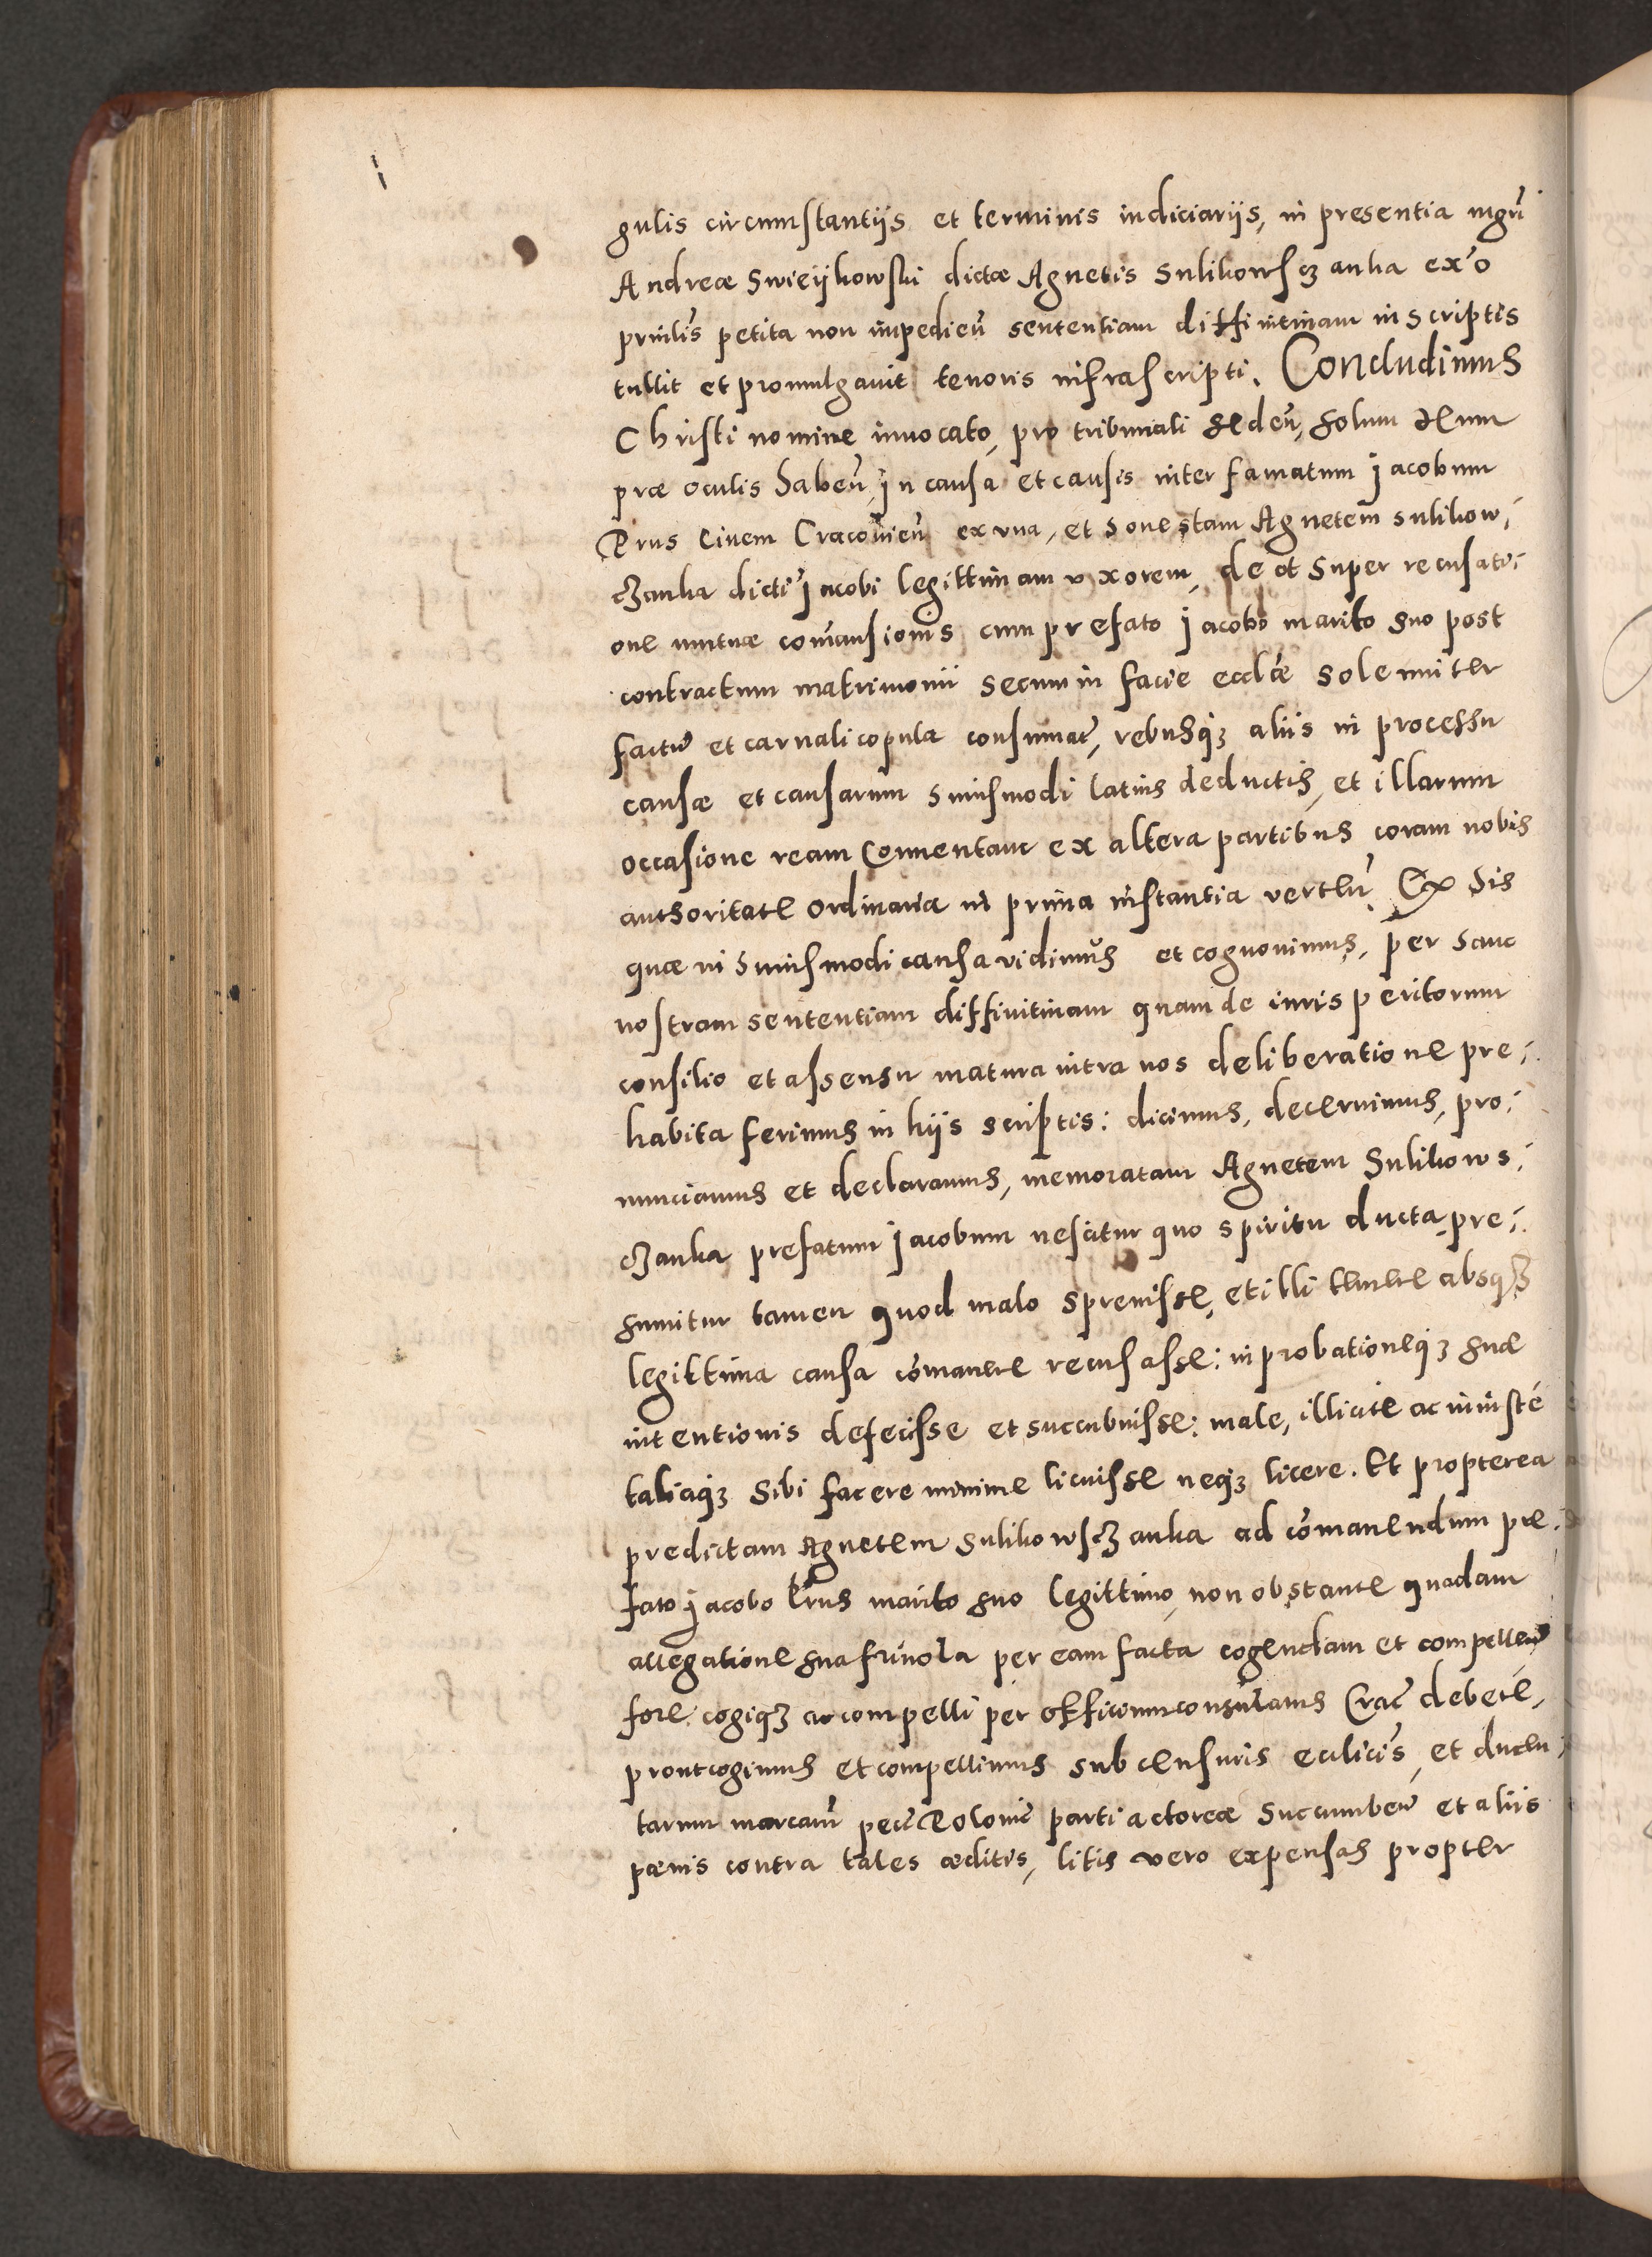 gulis circumstantijs et terminis iudiciarijs, in presentia mgr̃i
Andreæ Swieijkowski dictæ Agnetis Sulikowsczanka ex º
prinlis petita non impedien̄ sententiam diffinitiuam in scriptis
tullit et promulgauit tenoris infrascripti. Concludimus
Christi nomine inuocato, pro tribunali seden̄, solum Deum
præ oculis haben̄, in causa et causis inter famatum Jacobum
Prus Ciuem Cracouien̄ ex vna, et honestam Agnetem Sulikow⸗
czanka dicti Jacobi legittimam vxorem, de et super recusati⸗
one mutuæ com̄ansionis cum prefato Jacobo marito suo post
contractum matrimonii secum in facie eccl̄æ solemniter
factum et carnali copula consumat̄, rebusqꝫ aliis in processu
causæ et causarum huiusmodi latius deductis, et illarum
occasione ream conuentam ex altera partibus coram nobis
authoritate ordinaria in prima instantia verten̄. Ex his
quæ in huiusmodi causa vidimus et cognouimus, per hanc
nostram sententiam diffinitiuam quam de iuris peritorum
consilio et assensu matura intra nos deliberatione pre⸗
habita ferimus in hijs scriptis: dicimus, decernimus, pro⸗
nunciamus et declaramus, memoratam Agnetem Sulikows⸗
czanka prefatum Jacobum nescitur quo spiritu ducta pre⸗
sumitur tamen quod malo spreuisse, et illi temere absqꝫ
legittima causa com̄anere recusasse: in probationeqꝫ suæ
intentionis defecisse et succubuisse: male, illicite ac iniustè
taliaqꝫ sibi facere minime licuisse neqꝫ licere. Et propterea
predictam Agnetem Sulikowsczanka ad com̄anendum præ⸗
fato Jacobo Prus marito suo legittimo, non obstante quadam
allegatione sua friuola per eam facta cogendam et compellen̄
fore: cogiqꝫ ac compelli per officium consulatus Crac̄ debere,
prout cogimus et compellimus sub censuris eccl̄icis, et ducen⸗
tarum marcar̄ pec̄ Polonic̄ parti actoreæ succumben̄ et aliis
pœnis contra tales æditis, litis vero expensas propter